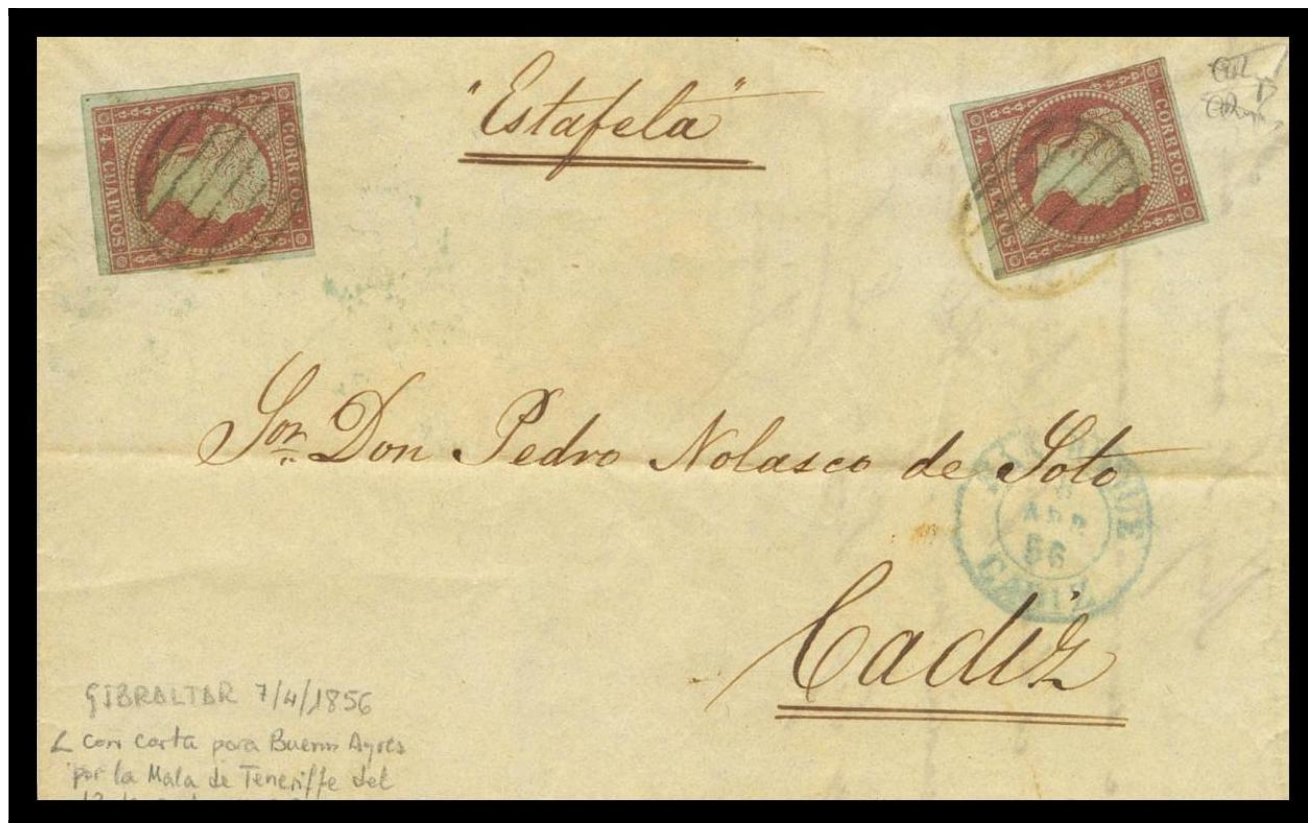 "Estafeta"
CORREOS
4. CUARTOS.
CORREOS
CUARTOS
Sor. Don Pedro Nolasco de Soto
ABR
56
CADIZ
Cadiz
GIBRALTAR 7/4/1856
con carta para Buenos Ayres
por la Mala de Teneriffe del